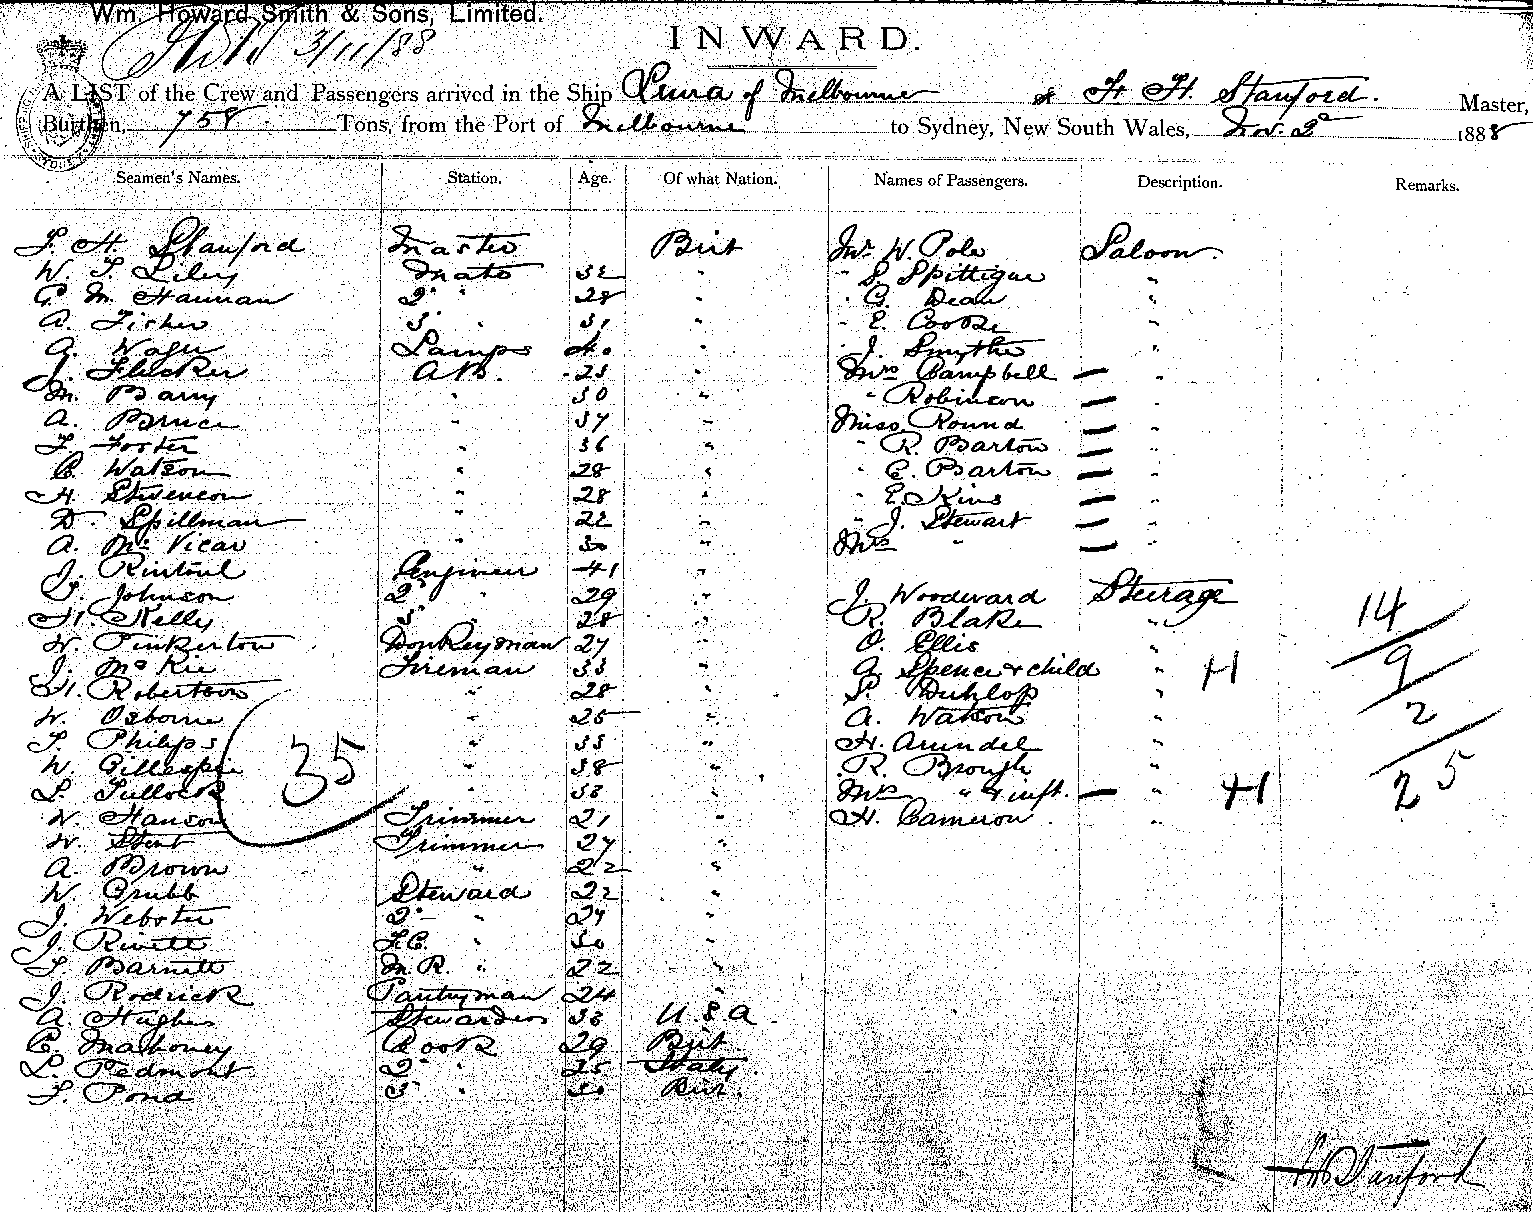 Wm. Howard Smith & Sons, Limited.
3/11/88
INWARD.
A LIST of the Crew and Passengers arrived in the Ship of Melbourne F. H. Stanford. Master,
Burthen, 758 Tons, from the Port of Melbourne to Sydney, New South Wales, Nov. 2d 1888
Seamen's Names. Station. Age. Of what Nation. Names of Passengers. Description. Remarks.
F. H. Stanford Master Brit Mr. W. Pole Saloon
W. T. Liley Mate 32 " " S. Spittigue "
G. M. Hannan 2d " 28 " " G. Dean "
A. Fisher 3d " 31 " " E. Cooke "
G. Lamps 40 " " J. Smythe "
J. Flecker A.B. 23 " Mrs Campbell — "
M. Barry " 30 " " Robinson — "
A. Bruce " 37 " Miss Round — "
F. Foster " 36 " " R. Barton — "
C. Watson " 28 " " E. Barton — "
H. Stevenson " 28 " " E. Kins — "
D. Spillman " 22 " " J. Stewart — "
A. McVicar " 30 " Mrs " — "
J. Rintoul Engineer 41 "
J. Johnson 2d " 29 " J. Woodward Steerage
H. Kelly 3d " 28 " R. Blake " 14
W. Pinkerton Donkeyman 27 " O. Ellis "
J. McKie Fireman 33 " G. Spence & child " H 9
H. Robertson " 28 " S. Dunlop "
W. Osborne " 25 " A. Watson " 2
T. Philips " 33 " H. Arundel "
W. Gillespie 35 " 38 " R. Brough "
L. Tullock " 38 " Mrs " & inft. — " H 25
W. Hanson Trimmer 21 " H. Cameron "
W. Stent Trimmer 27 "
A. Brown " 22 "
W. Grubb Steward 22 "
J. Webster 2d " 27 "
J. Rivett F.C. " 30 "
F. Barnett M.R. " 22 "
J. Rodrick Pantryman 24 "
A. Hughes Stewardess 33 U.S.A
C. Mahoney Cook 29 Brit
L. Pedmont 2d " 25 Italy
F. Pond 3d " 30 Brit.
Stanford